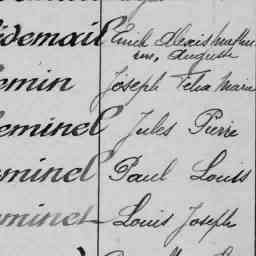 idemail Emile Alexis
Auguste
emin Joseph Felix Marie
eminel Jules Pierre
eminel Paul Louis
eminel Louis Joseph